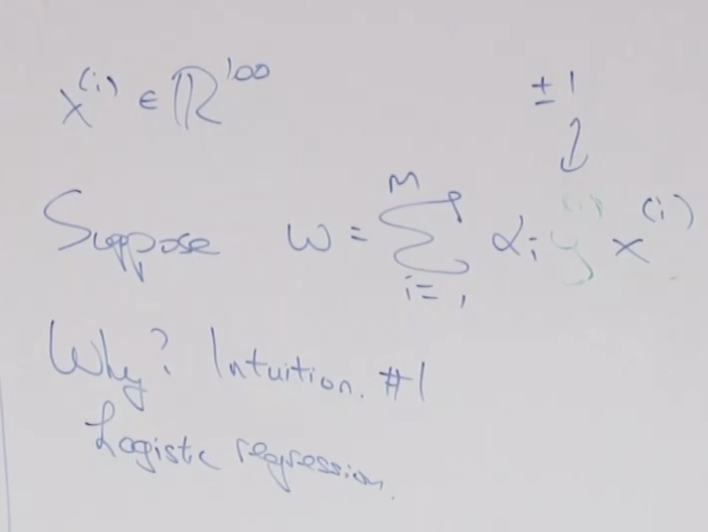 x^(i) ∈ ℝ^100
±1
Suppose w = Σ_{i=1}^{M} α_i y^(i) x^(i)
Why? Intuition. #1
Logistic regression.